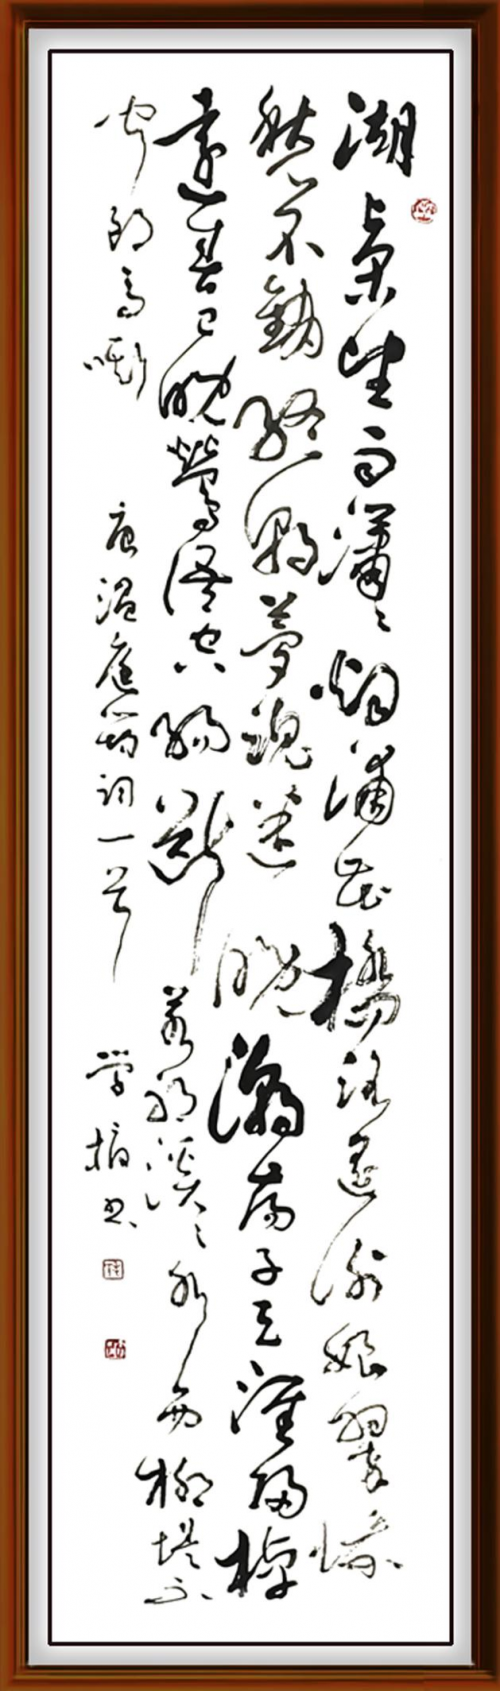 湖上闲望雨潇潇烟浦花桥路遥谢娘翠蛾
愁不销终朝梦魂迷晚潮荡子天涯归棹
远春已晚莺语空肠断若耶溪溪水西柳堤不
闻郎马嘶 唐温庭筠词一首 学 书